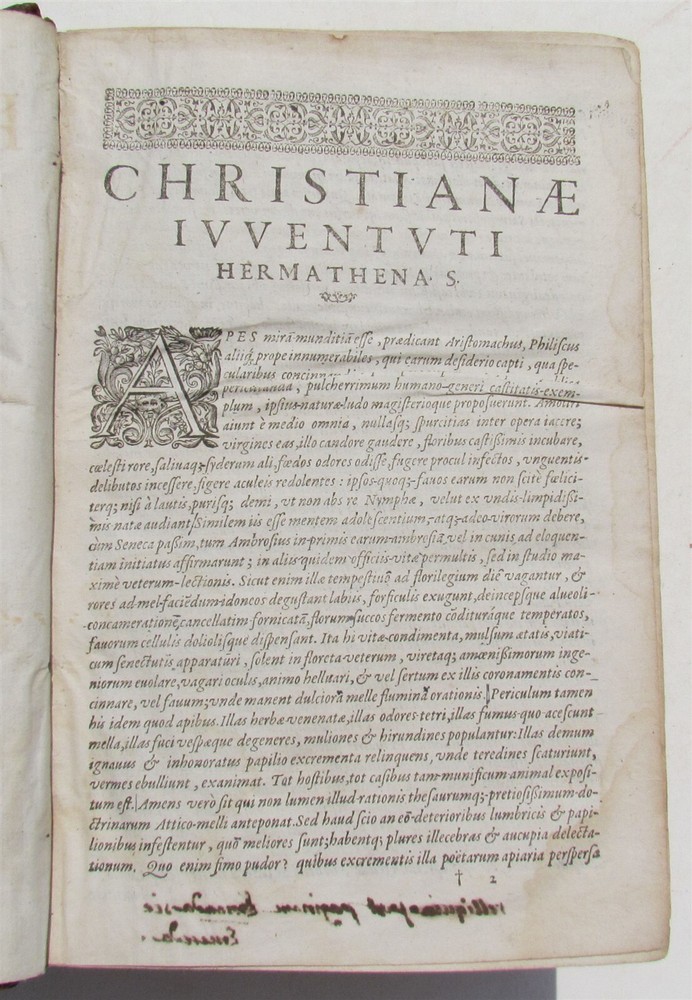 CHRISTIANÆ
IVVENTVTI
HERMATHENA. S.
APES mirā munditiā esse, prædicant Aristomachus, Philiscus
aliiq; prope innumerabiles, qui earum desiderio capti, qua spe-
cularibus
pulcherrimum humano generi castitatis exem-
plum, ipsius naturæ ludo magisterioque proposuerunt.
aiunt è medio omnia, nullasq; spurcitias inter opera iacere;
virgines eas, illo candore gaudere, floribus castißimis incubare,
cœlesti rore, salivaq; syderum ali, fœdos odores odisse, fugere procul infectos, vnguentis
delibutos incessere, figere aculeis redolentes: ipsos quoq; fauos earum non scitè fœlici-
terq; nisi à lautis, purisq; demi, vt non abs re Nymphæ, velut ex vndis limpidißi-
mis natæ audiant. Similem iis esse mentem adolescentium, atq; adeo virorum debere,
cùm Seneca paßim, tum Ambrosius in primis earum ambrosiā, vel in cunis ad eloquen-
tiam initiatus affirmarunt; in aliis quidem officiis vitæ permultis, sed in studio ma-
ximè veterum lectionis. Sicut enim illæ tempestiuo ad florilegium die vagantur, &
rores ad mel faciēdum idoneos degustant labiis, forficulis exugunt, deincepsque alueoli
concamerationē, cancellatim fornicatā, florum succos fermento cōditurāque temperatos,
fauorum cellulis doliolisque dispensant. Ita hi vitæ condimenta, mulsum ætatis, viati-
cum senectutis apparaturi, solent in floreta veterum, viretaq; amœnißimorum inge-
niorum euolare, vagari oculis, animo helluari, & vel sertum ex illis coronamentis con-
cinnare, vel fauum; vnde manent dulciora melle flumina orationis. Periculum tamen
his idem quod apibus. Illas herbæ venenatæ, illas odores tetri, illas fumus quo acescunt
mella, illas fuci vespæque degeneres, muliones & hirundines populantur: Illas demum
ignauus & inhonoratus papilio excrementa relinquens, vnde teredines scaturiunt,
vermes ebulliunt, exanimat. Tot hostibus, tot casibus tam munificum animal exposi-
tum est. Amens verò sit qui non lumen illud rationis thesaurumq; pretiosißimum do-
ctrinarum Attico melli anteponat. Sed haud scio an eò deterioribus lumbricis & papi-
lionibus infestentur, quò meliores sunt; habentq; plures illecebras & aucupia delecta-
tionum. Quo enim fimo pudor? quibus excrementis illa poëtarum apiaria perspersa
† 2